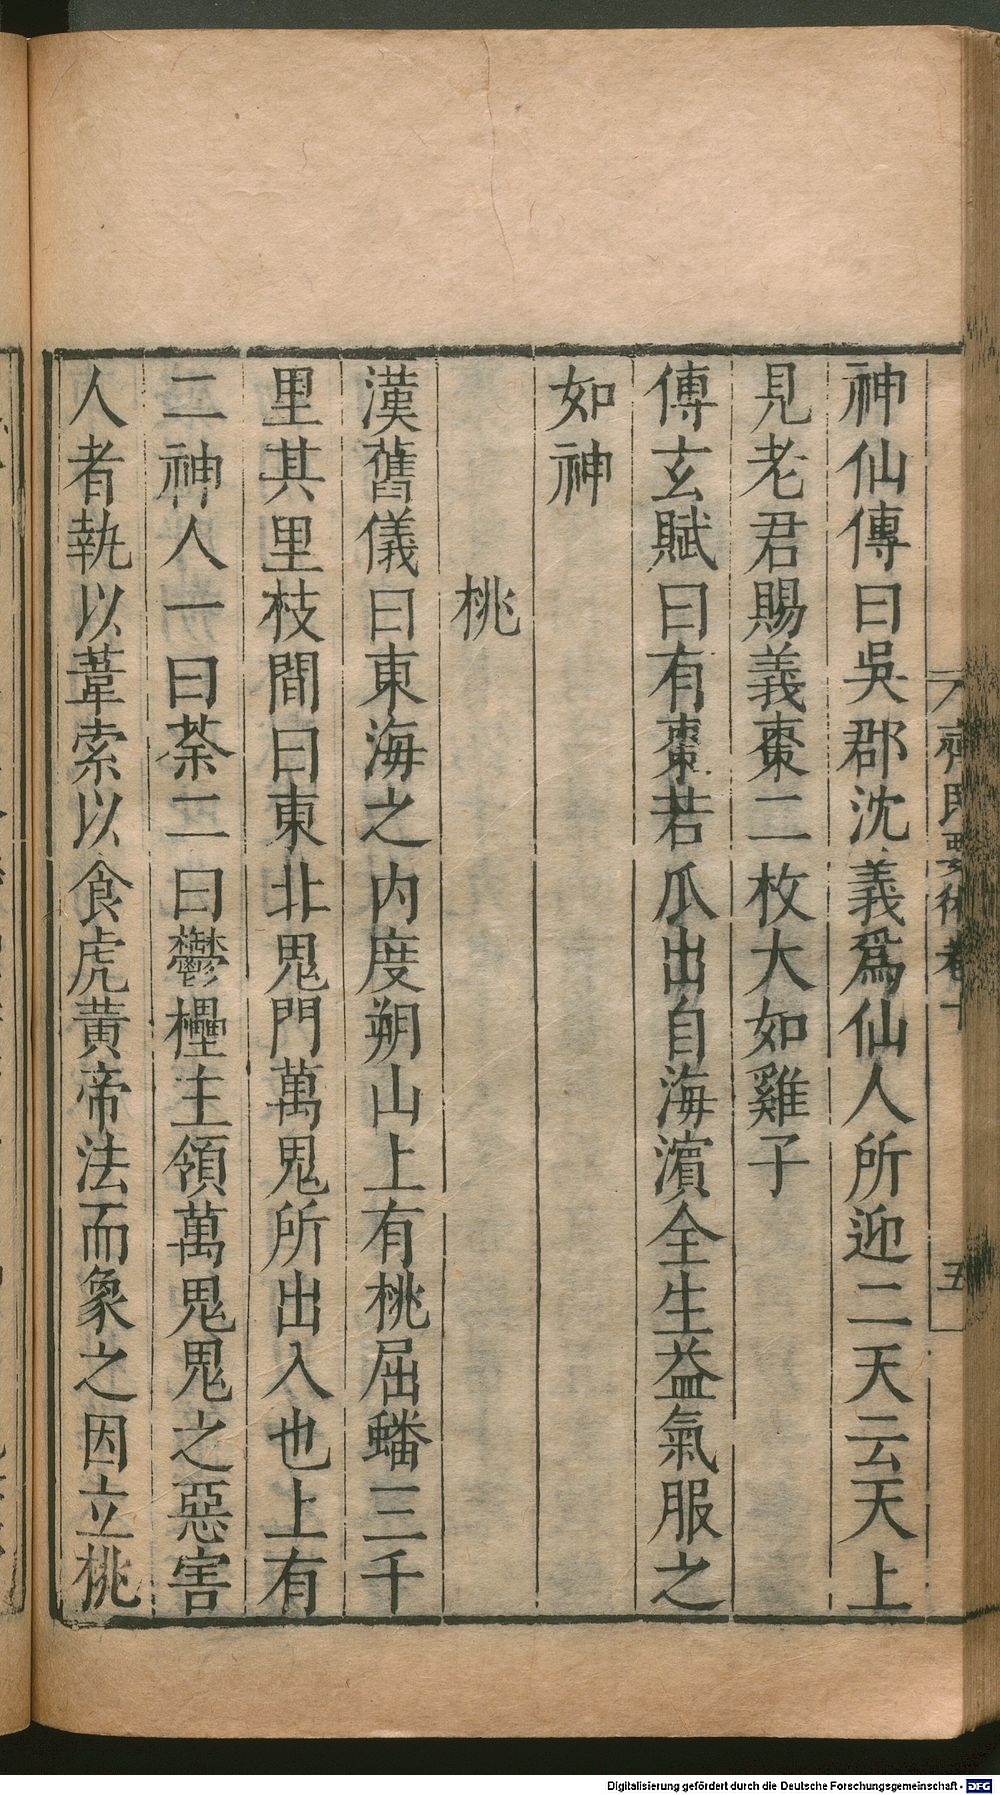 齊民要術卷十
五
神仙傳曰吳郡沈羲爲仙人所迎二天云天上
見老君賜義棗二枚大如雞子
傳玄賦曰有棗若瓜出自海濵全生益氣服之
如神
桃
漢舊儀曰東海之内度朔山上有桃屈蟠三千
里其里枝間曰東北鬼門萬鬼所出入也上有
二神人一曰荼二曰鬱櫑主領萬鬼鬼之惡害
人者執以葦索以食虎黄帝法而象之因立桃
Digitalisierung gefördert durch die Deutsche Forschungsgemeinschaft - DFG